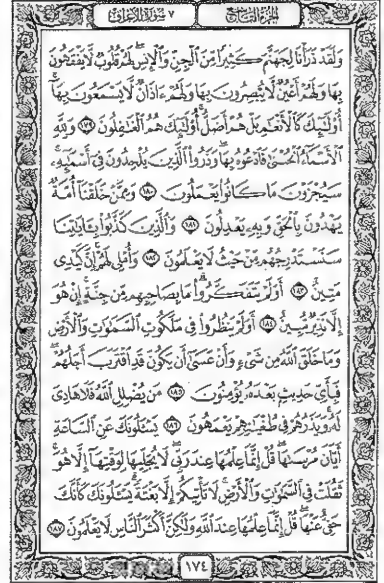 ٧ سورة الأعراف الجزء التاسع
وَلَقَدْ ذَرَأْنَا لِجَهَنَّمَ كَثِيرًا مِّنَ الْجِنِّ وَالْإِنسِ لَهُمْ قُلُوبٌ لَّا يَفْقَهُونَ
بِهَا وَلَهُمْ أَعْيُنٌ لَّا يُبْصِرُونَ بِهَا وَلَهُمْ ءَاذَانٌ لَّا يَسْمَعُونَ بِهَا
أُوْلَٰئِكَ كَالْأَنْعَٰمِ بَلْ هُمْ أَضَلُّ أُوْلَٰئِكَ هُمُ الْغَٰفِلُونَ ١٧٩ وَلِلَّهِ
الْأَسْمَاءُ الْحُسْنَىٰ فَادْعُوهُ بِهَا وَذَرُوا الَّذِينَ يُلْحِدُونَ فِي أَسْمَٰئِهِ
سَيُجْزَوْنَ مَا كَانُوا يَعْمَلُونَ ١٨٠ وَمِمَّنْ خَلَقْنَا أُمَّةٌ
يَهْدُونَ بِالْحَقِّ وَبِهِ يَعْدِلُونَ ١٨١ وَالَّذِينَ كَذَّبُوا بِـَٔايَٰتِنَا
سَنَسْتَدْرِجُهُم مِّنْ حَيْثُ لَا يَعْلَمُونَ ١٨٢ وَأُمْلِي لَهُمْ إِنَّ كَيْدِي
مَتِينٌ ١٨٣ أَوَلَمْ يَتَفَكَّرُوا مَا بِصَاحِبِهِم مِّن جِنَّةٍ إِنْ هُوَ
إِلَّا نَذِيرٌ مُّبِينٌ ١٨٤ أَوَلَمْ يَنظُرُوا فِي مَلَكُوتِ السَّمَٰوَٰتِ وَالْأَرْضِ
وَمَا خَلَقَ اللَّهُ مِن شَيْءٍ وَأَنْ عَسَىٰ أَن يَكُونَ قَدِ اقْتَرَبَ أَجَلُهُمْ
فَبِأَيِّ حَدِيثٍ بَعْدَهُ يُؤْمِنُونَ ١٨٥ مَن يُضْلِلِ اللَّهُ فَلَا هَادِيَ
لَهُ وَيَذَرُهُمْ فِي طُغْيَٰنِهِمْ يَعْمَهُونَ ١٨٦ يَسْـَٔلُونَكَ عَنِ السَّاعَةِ
أَيَّانَ مُرْسَىٰهَا قُلْ إِنَّمَا عِلْمُهَا عِندَ رَبِّي لَا يُجَلِّيهَا لِوَقْتِهَا إِلَّا هُوَ
ثَقُلَتْ فِي السَّمَٰوَٰتِ وَالْأَرْضِ لَا تَأْتِيكُمْ إِلَّا بَغْتَةً يَسْـَٔلُونَكَ كَأَنَّكَ
حَفِيٌّ عَنْهَا قُلْ إِنَّمَا عِلْمُهَا عِندَ اللَّهِ وَلَٰكِنَّ أَكْثَرَ النَّاسِ لَا يَعْلَمُونَ ١٨٧
١٧٤